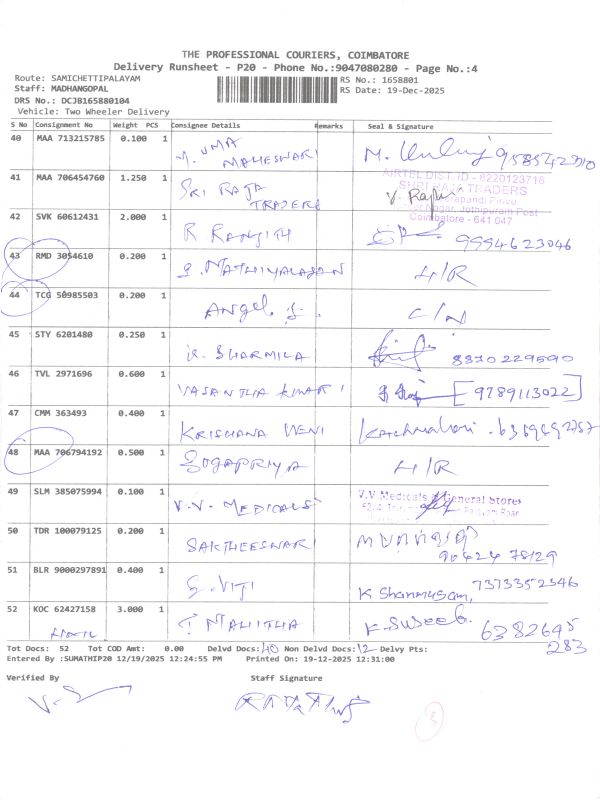 THE PROFESSIONAL COURIERS, COIMBATORE
Delivery Runsheet - P20 - Phone No.:9047080280 - Page No.:4
Route: SAMICHETTIPALAYAM
Staff: MADHANGOPAL
RS No.: 1658801
RS Date: 19-Dec-2025
DRS No.: DCJB165880104
Vehicle: Two Wheeler Delivery
S No Consignment No Weight PCS Consignee Details Remarks Seal & Signature
40 MAA 713215785 0.100 1 M. UMA MAHESWARI
41 MAA 706454760 1.250 1 SRI RAJA TRADERS
AIRTEL DIST. ID - 6220123716
SHRI RAJA TRADERS
Jothipuram Post
Coimbatore - 641 047
42 SVK 60612431 2.000 1 R RANJITH 9994623046
43 RMD 3054610 0.200 1 H/R
44 TCG 50985503 0.200 1 ANGEL C/N
45 STY 6201480 0.250 1 SHARMILA 8370229590
46 TVL 2971696 0.600 1 VASANTHA KUMARI [9789113022]
47 CMM 363493 0.400 1 KRISHANA VENI
48 MAA 706794192 0.500 1 H/R
49 SLM 385075994 0.100 1 V.V. MEDICALS
V.V Medicals & General Stores
50 TDR 100079125 0.200 1 SAKTHEESWARI
90424 78129
51 BLR 9000297891 0.400 1 S. VIJI K Shanmugam, 7373352346
52 KOC 62427158 3.000 1 6382645
283
Tot Docs: 52 Tot COD Amt: 0.00 Delvd Docs: 40 Non Delvd Docs: 12 Delvy Pts:
Entered By :SUMATHIP20 12/19/2025 12:24:55 PM Printed On: 19-12-2025 12:31:00
Verified By Staff Signature
3